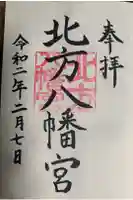 奉拝
北方八幡宮
令和二年二月七日